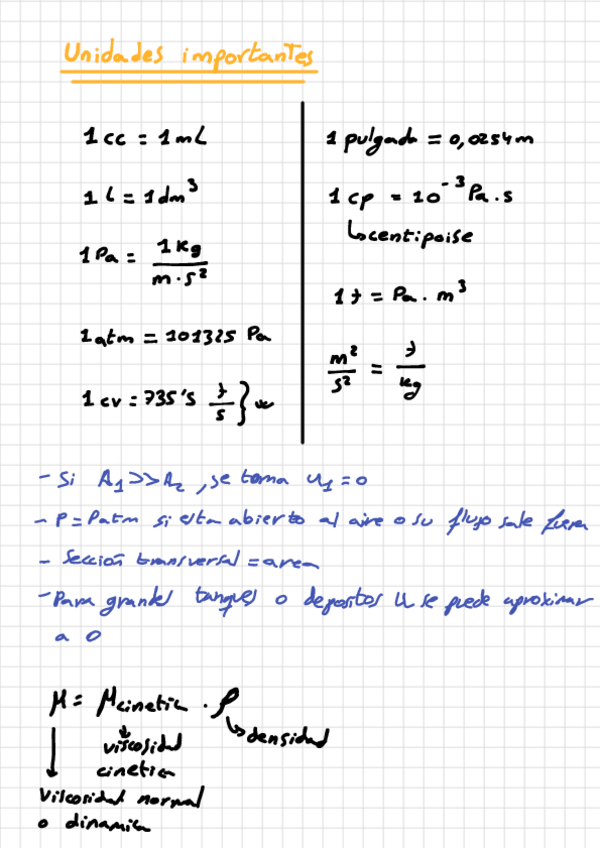 Unidades importantes
1 cc = 1 mL
1 L = 1 dm³
1 Pa = 1 kg / m · s²
1 atm = 101325 Pa
1 cv = 735's J/s } w
1 pulgada = 0,0254 m
1 cp = 10⁻³ Pa · s
↳ centipoise
1 J = Pa · m³
m²/s² = J/kg
- Si A₁ >> A₂, se toma u₁ = 0
- P = Patm si esta abierto al aire o su flujo sale fuera
- Sección transversal = area
- Para grandes tanques o depositos u se puede aproximar
a 0
μ = μcinetic · ρ
↳ densidad
viscosidad
cinetica
Viscosidad normal
o dinamica